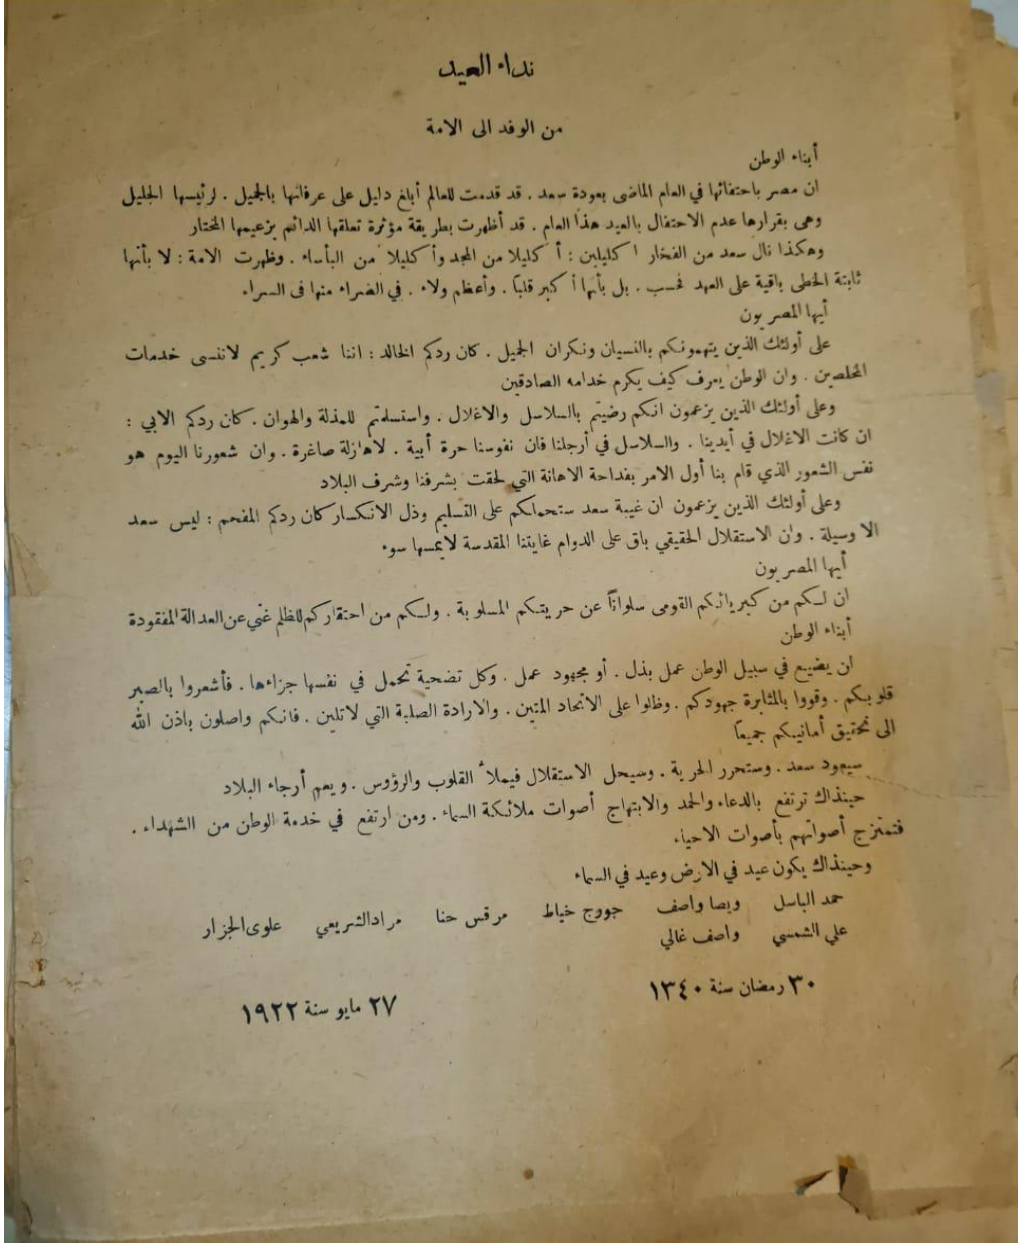 نداء العيد
من الوفد الى الامة
أبناء الوطن
ان مصر باحتفائها في العام الماضى بعودة سعد . قد قدمت للعالم أبلغ دليل على عرفانها بالجميل . لرئيسها الجليل
وهى بقرارها عدم الاحتفال بالعيد هذا العام . قد أظهرت بطريقة مؤثرة تعلقها الدائم بزعيمها المختار
وهكذا نال سعد من الفخار اكليلين : أكليلا من المجد وأكليلا من البأساء . وظهرت الامة : لا بأنها
ثابتة الخطى باقية على العهد فحسب . بل بأنها أكبر قلباً . وأعظم ولاء . في الضراء منها فى السراء
أيها المصريون
على أولئك الذين يتهمونكم بالنسيان ونكران الجميل . كان ردكم الخالد : اننا شعب كريم لاننسى خدمات
المخلصين . وان الوطن يعرف كيف يكرم خدامه الصادقين
وعلى أولئك الذين يزعمون انكم رضيتم بالسلاسل والاغلال . واستسلمتم للمذلة والهوان . كان ردكم الابي :
ان كانت الاغلال في أيدينا . والسلاسل في أرجلنا فان نفوسنا حرة أبية . لاهازلة صاغرة . وان شعورنا اليوم هو
نفس الشعور الذي قام بنا أول الامر بفداحة الاهانة التي لحقت بشرفنا وشرف البلاد
وعلى أولئك الذين يزعمون ان غيبة سعد ستحملكم على التسليم وذل الانكسار كان ردكم المفحم : ليس سعد
الا وسيلة . وان الاستقلال الحقيقي باق على الدوام غايتنا المقدسة لايمسها سوء
أيها المصريون
ان لكم من كبريائكم القومى سلواناً عن حريتكم المسلوبة . ولكم من احتقاركم للظلم غنى عن العدالة المفقودة
أبناء الوطن
ان يضيع في سبيل الوطن عمل بذل . أو مجهود عمل . وكل تضحية تحمل في نفسها جزاءها . فأشعروا بالصبر
قلوبكم . وقووا بالمثابرة جهودكم . وظلوا على الاتحاد المتين . والارادة الصلبة التي لاتلين . فانكم واصلون باذن الله
الى تحقيق أمانيكم جميعاً
سيعود سعد . وستحرر الحرية . وسيحل الاستقلال فيملأ القلوب والرؤوس . ويعم أرجاء البلاد
حينذاك ترتفع بالدعاء والحمد والابتهاج أصوات ملائكة السماء . ومن ارتفع في خدمة الوطن من الشهداء .
فتمتزج أصواتهم بأصوات الاحياء
وحينذاك يكون عيد في الارض وعيد في السماء
حمد الباسل ويصا واصف جورج خياط مرقس حنا مراد الشريعي علوى الجزار
علي الشمسي واصف غالي
٣٠ رمضان سنة ١٣٤٠
٢٧ مايو سنة ١٩٢٢